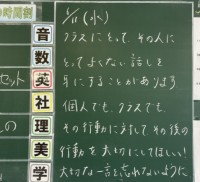 の時間割
6/11 (水)
音
数
英
社
理
美
学
セット
の
クラスにとって、その人に
とってよくない話しを
耳にすることがあります
個人でも、クラスでも、
その行動に対して、その後の
行動を大切にしてほしい!
大切な一言を忘れないように